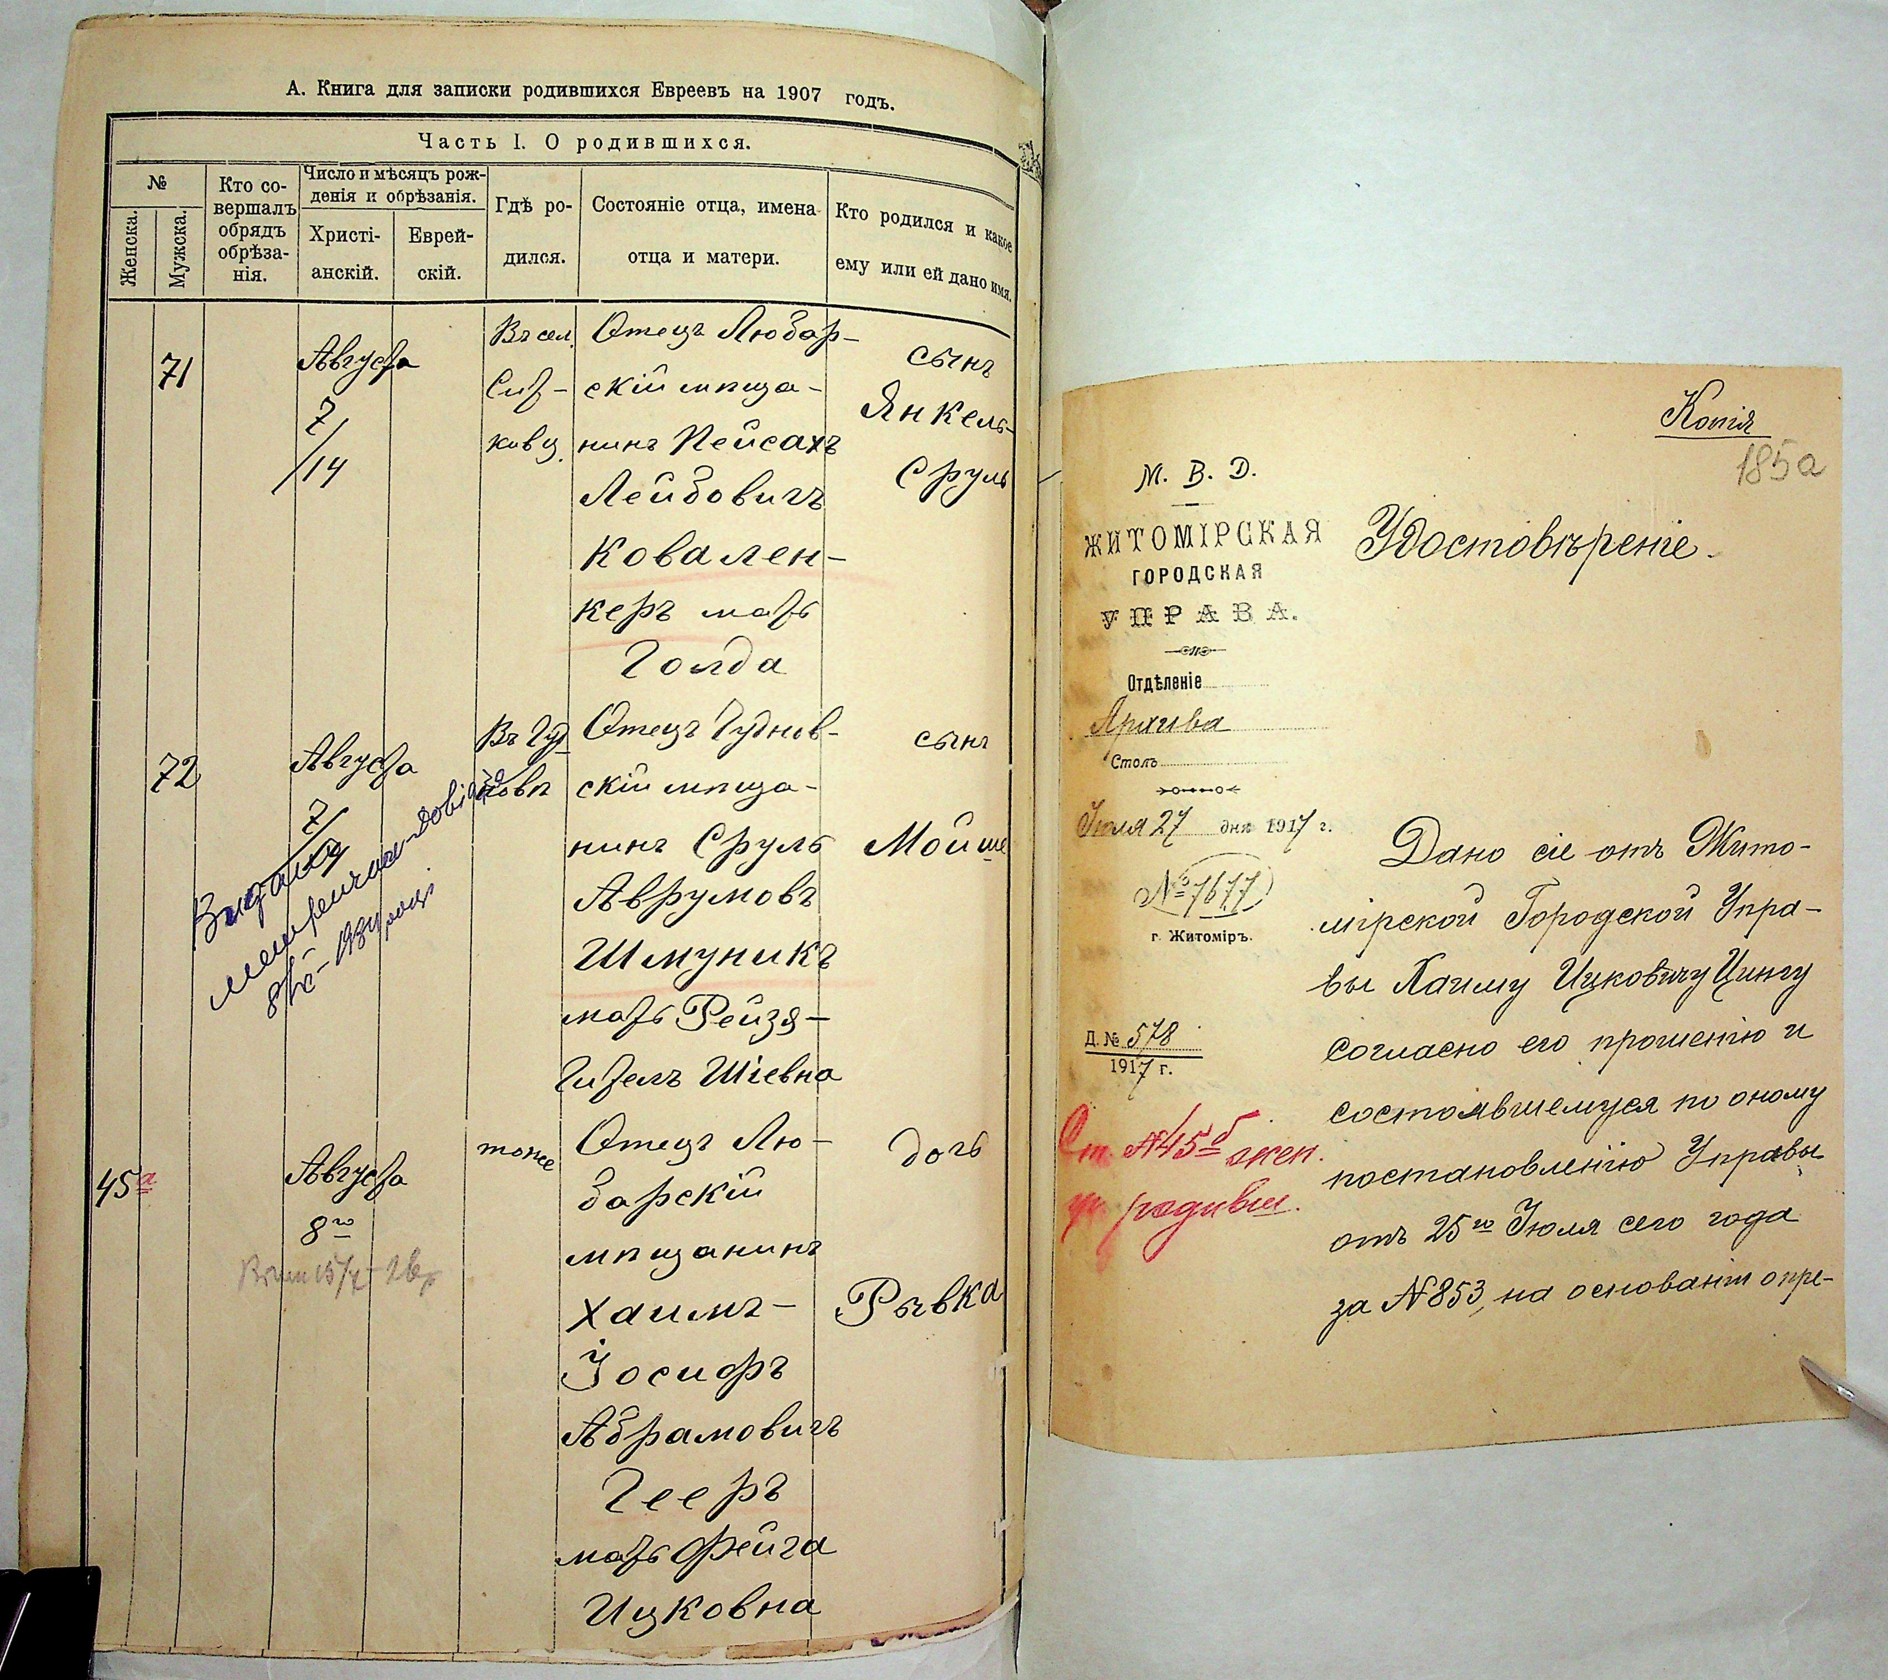 А. Книга для записки родившихся Евреевъ на 1907 годъ.
Часть I. О родившихся.
№
Женска.
Мужска.
Кто со-
вершалъ
обрядъ
обрѣза-
нія.
Число и мѣсяцъ рож-
денія и обрѣзанія.
Христі-
анскій.
Еврей-
скій.
Гдѣ ро-
дился.
Состояніе отца, имена
отца и матери.
Кто родился и какое
ему или ей дано имя.
71
Августа
7/14
Въ сел.
Отецъ Любар-
скій мѣща-
нинъ Пейсахъ
Лейбовичъ
Ковален-
керъ мать
Голда
сынъ
Янкель-
Сруль
72
Августа
7/
Отецъ Чуднов-
скій мѣща-
нинъ Сруль
Аврумовъ
Шмуникъ
мать Рейзя-
Гитель Шіевна
сынъ
Мойше
45а
Августа
8го
тоже
Отецъ Лю-
барскій
мѣщанинъ
Хаимъ-
Іосифъ
Абрамовичъ
Гееръ
мать Фейга
Ицковна
дочь
Рывка
Копія
185а
М. В. Д.
ЖИТОМІРСКАЯ
ГОРОДСКАЯ
УПРАВА.
Отдѣленіе
Архива
Столъ
Іюля 27 дня 1917 г.
№ 7677
г. Житоміръ.
Д. № 578
1917 г.
Ст. №45б жен.
родивш.
Удостовѣреніе.
Дано сіе отъ Жито-
мірской Городской Упра-
вы Хаиму Ицковичу Цингу
согласно его прошенію и
состоявшемуся по оному
постановленію Управы
отъ 25го Іюля сего года
за №853, на основаніи опре-